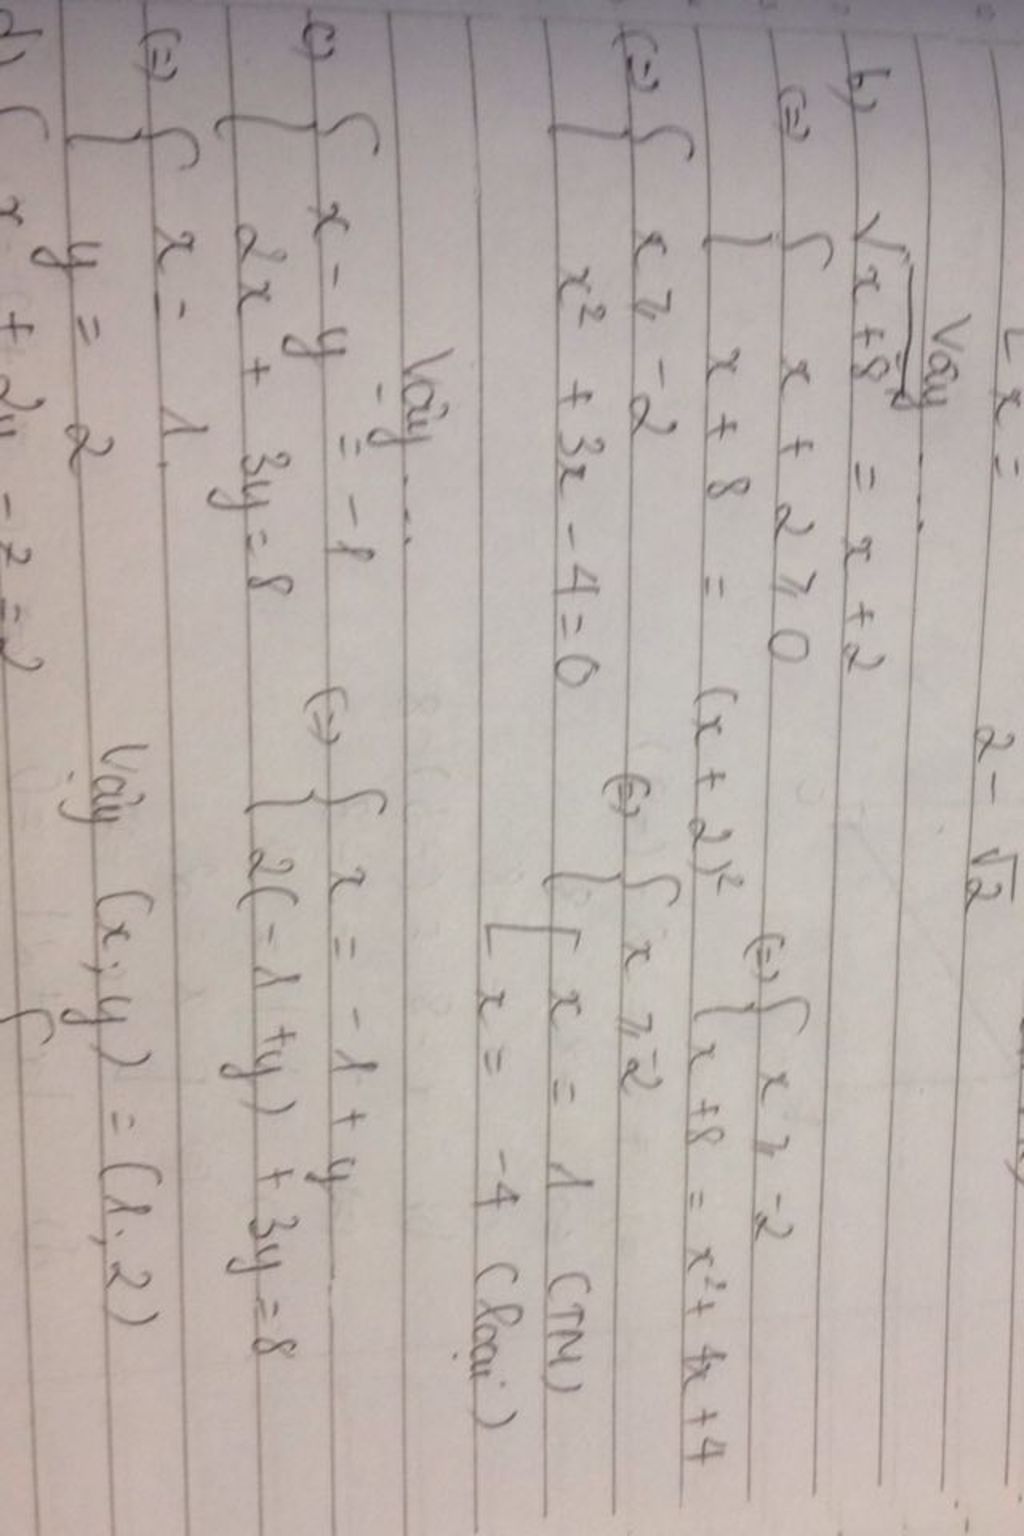 x = 2 - √2
Vậy .
b) √x + 8 = x + 2
(=) { x + 2 ≥ 0 (=) { x ≥ -2
{ x + 8 = (x + 2)² { x + 8 = x² + 4x + 4
(=) { x ≥ -2 (=) { x ≥ -2
{ x² + 3x - 4 = 0 { [ x = 1 (TM)
[ x = -4 (loại)
Vậy ...
c) { x - y = -1 (=) { x = -1 + y
{ 2x + 3y = 8 { 2(-1 + y) + 3y = 8
(=) { x = 1
{ y = 2 Vậy (x; y) = (1; 2)
d) { x + 2y - z = 2